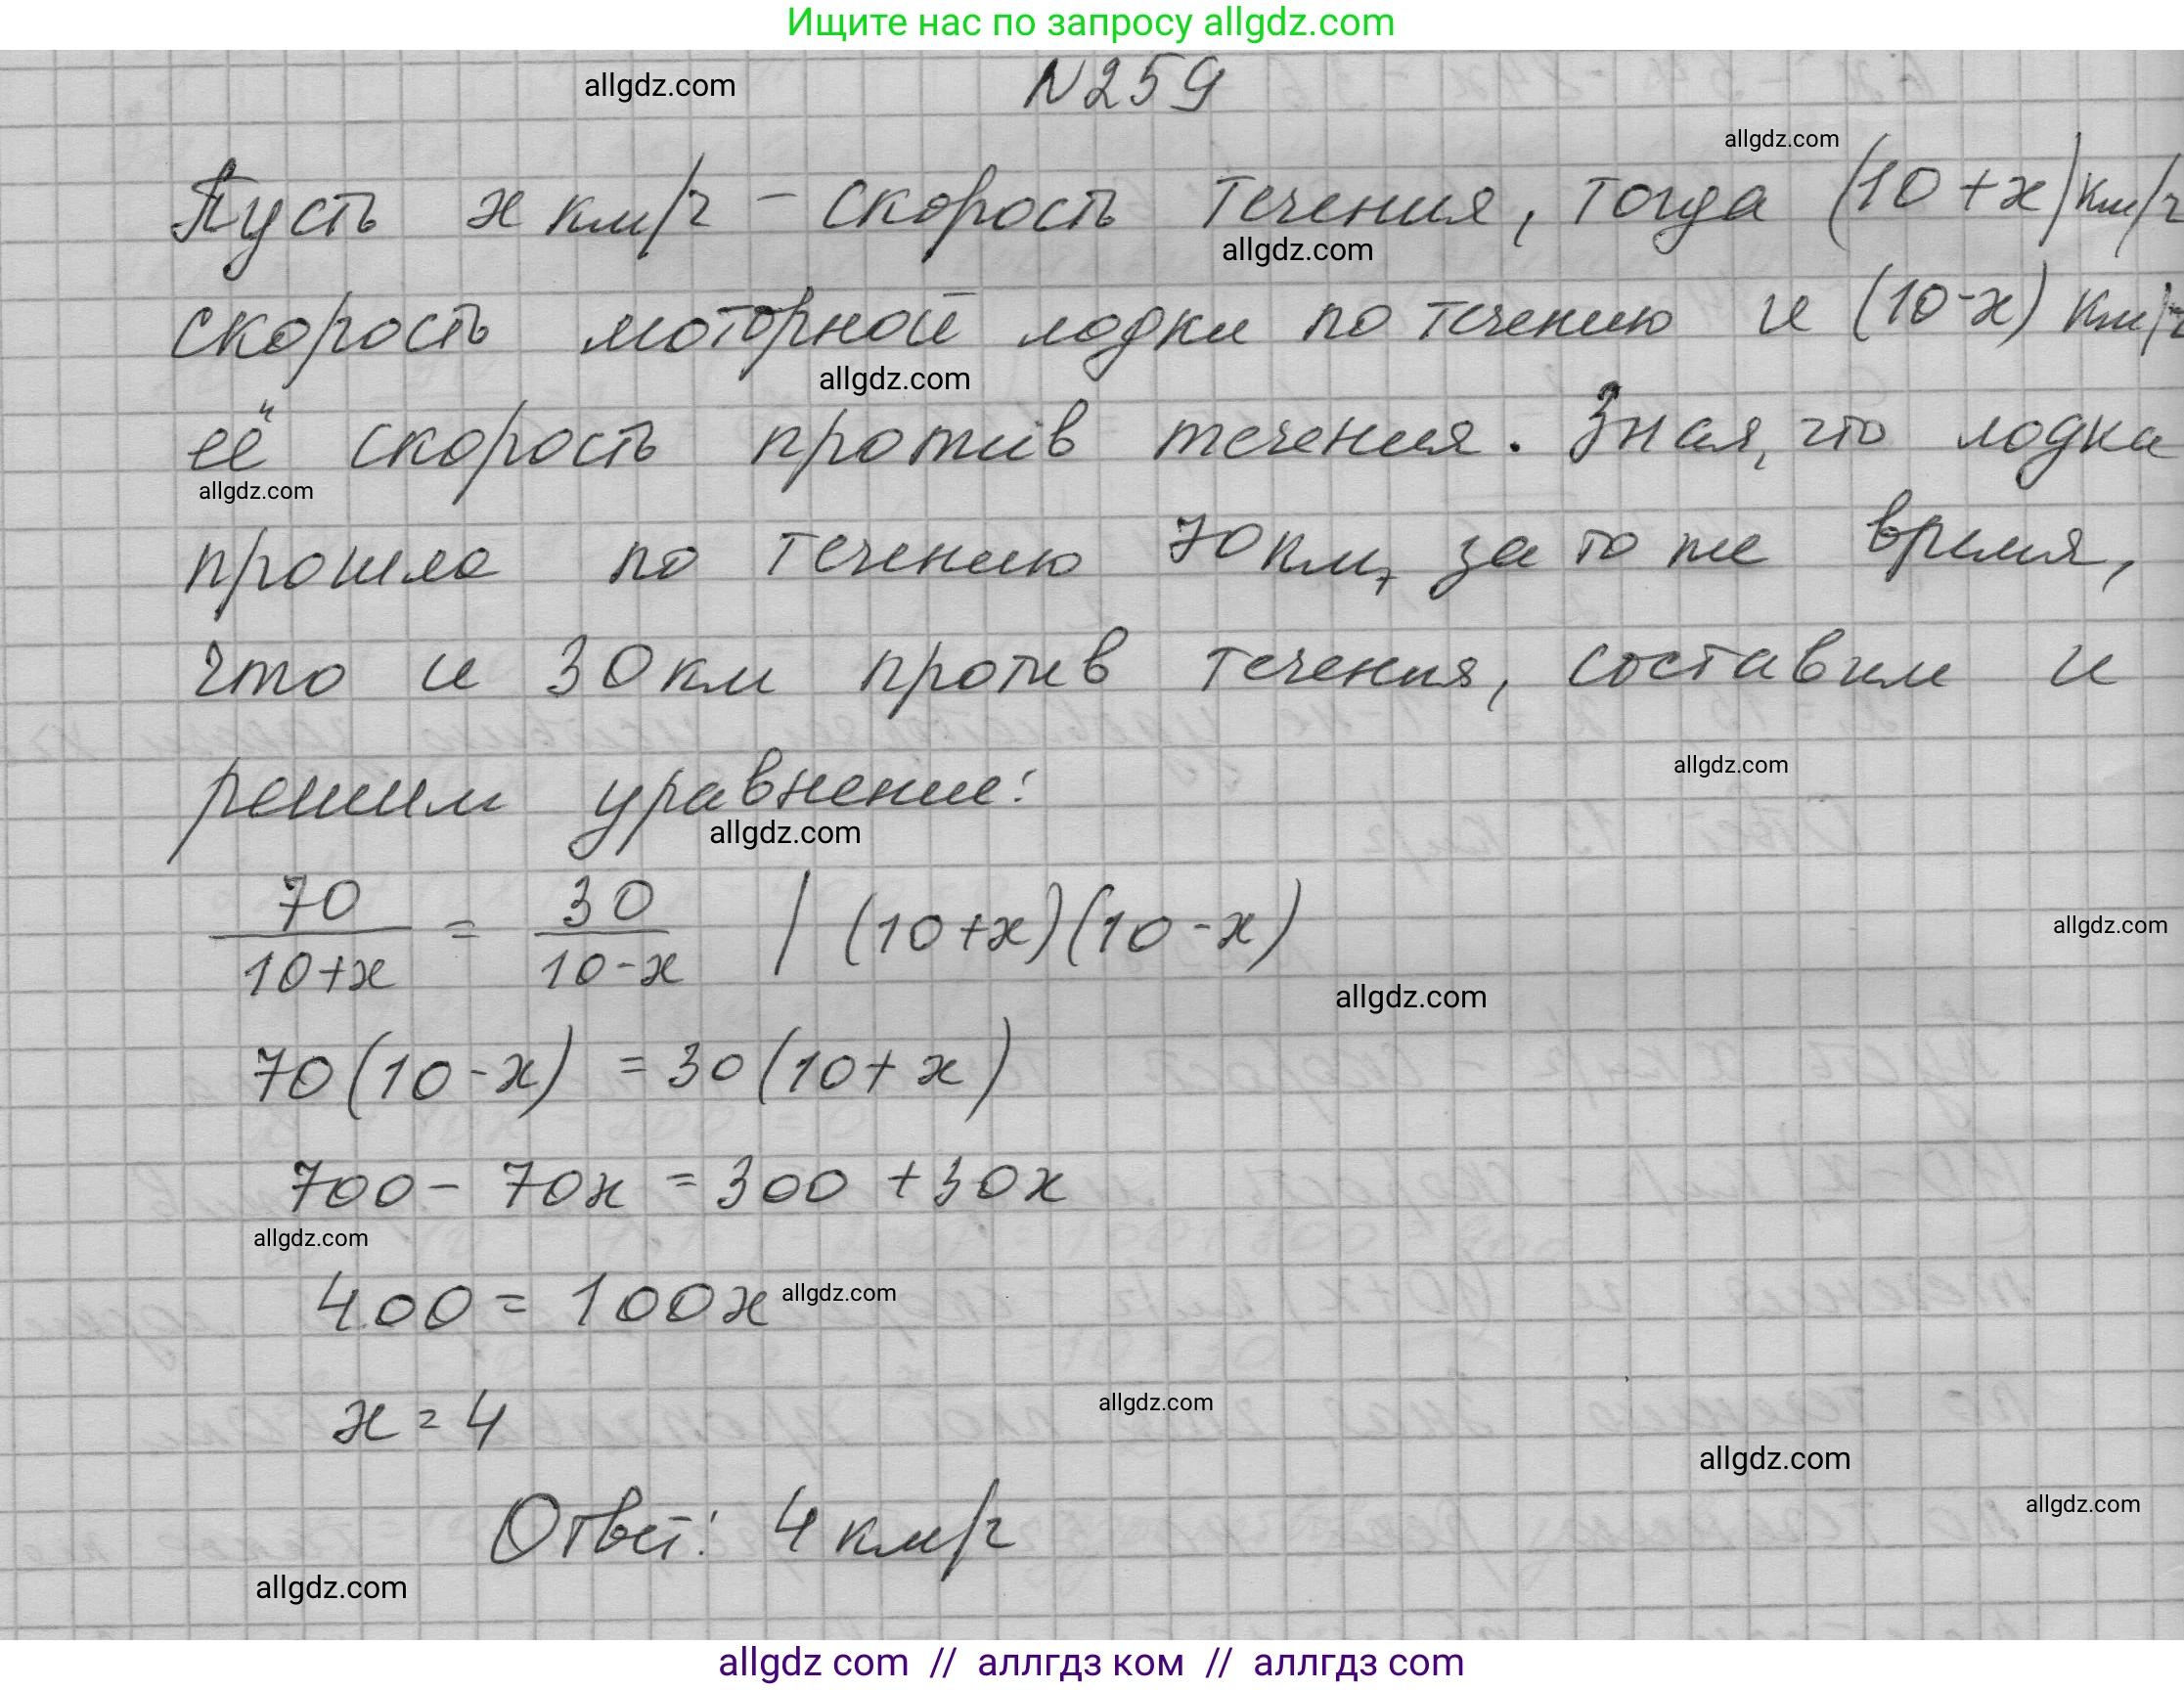 Ищите нас по запросу allgdz.com
N259
allgdz.com
allgdz.com
Пусть x км/ч - скорость течения, тогда (10+x) км/ч
allgdz.com
скорость моторной лодки по течению и (10-x) км/ч
allgdz.com
её скорость против течения. Зная, что лодка
allgdz.com
прошла по течению 70 км, за то же время,
что и 30 км против течения, составим и
allgdz.com
решим уравнение:
allgdz.com
70/(10+x) = 30/(10-x) | (10+x)(10-x)
allgdz.com
allgdz.com
70(10-x) = 30(10+x)
700 - 70x = 300 + 30x
allgdz.com
400 = 100x
allgdz.com
x = 4
allgdz.com
allgdz.com
allgdz.com
Ответ: 4 км/ч
allgdz.com
allgdz com // аллгдз ком // аллгдз com